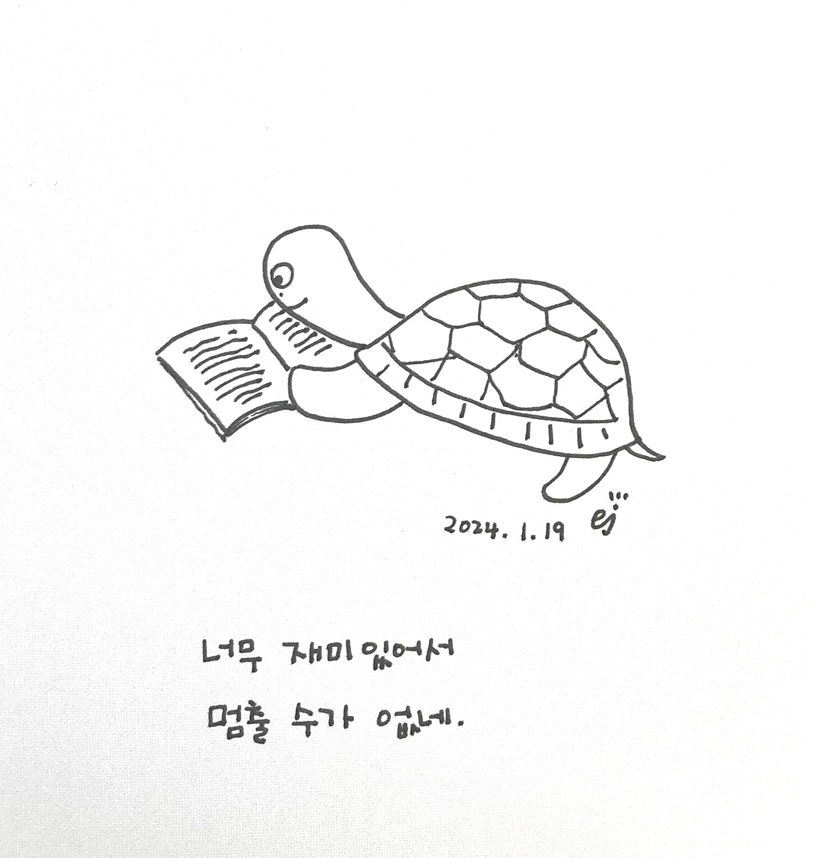 2024.1.19 ej
너무 재미있어서
멈출 수가 없네.